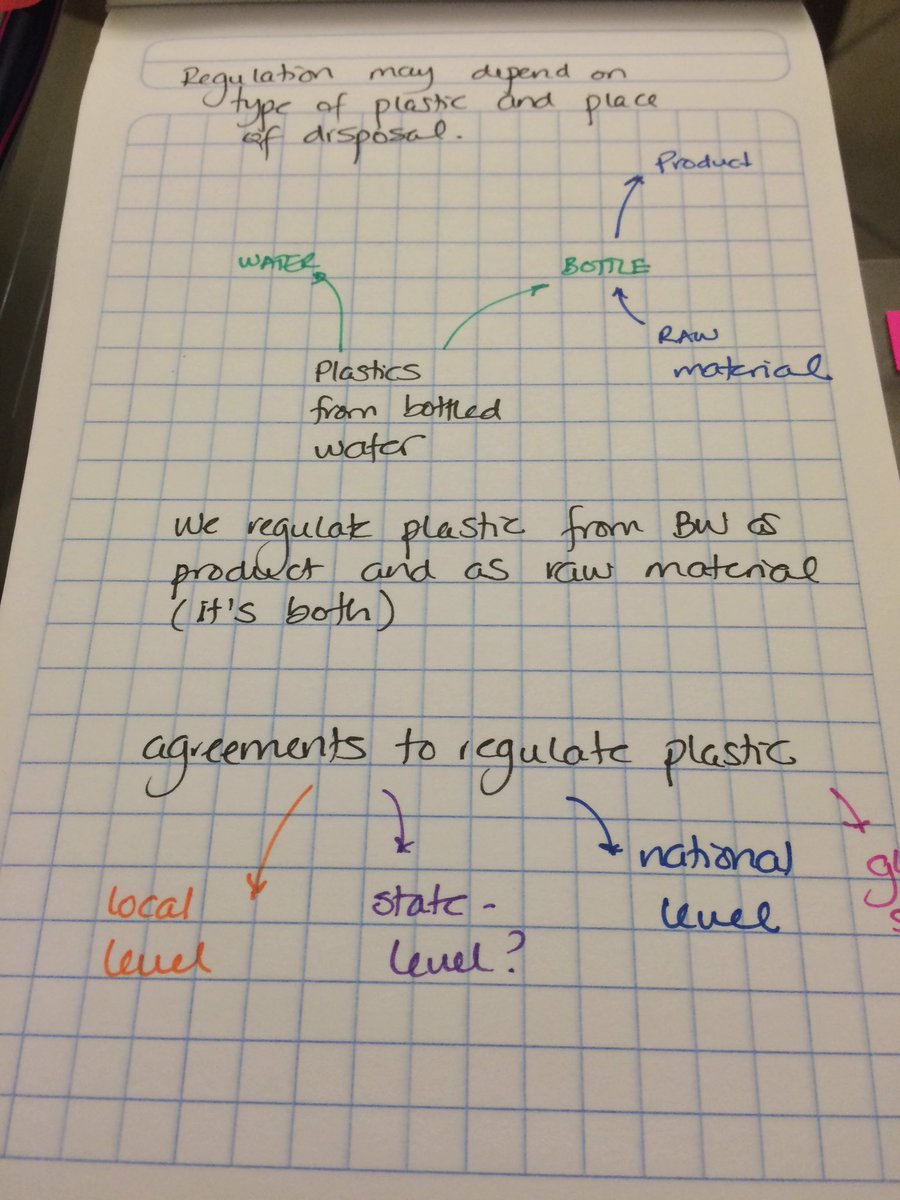 Regulation may depend on
type of plastic and place
of disposal.
Product
WATER
BOTTLE
RAW
material
Plastics
from bottled
water
We regulate plastic from BW as
product and as raw material
(it's both)
agreements to regulate plastic
local
level
state-
level?
national
level